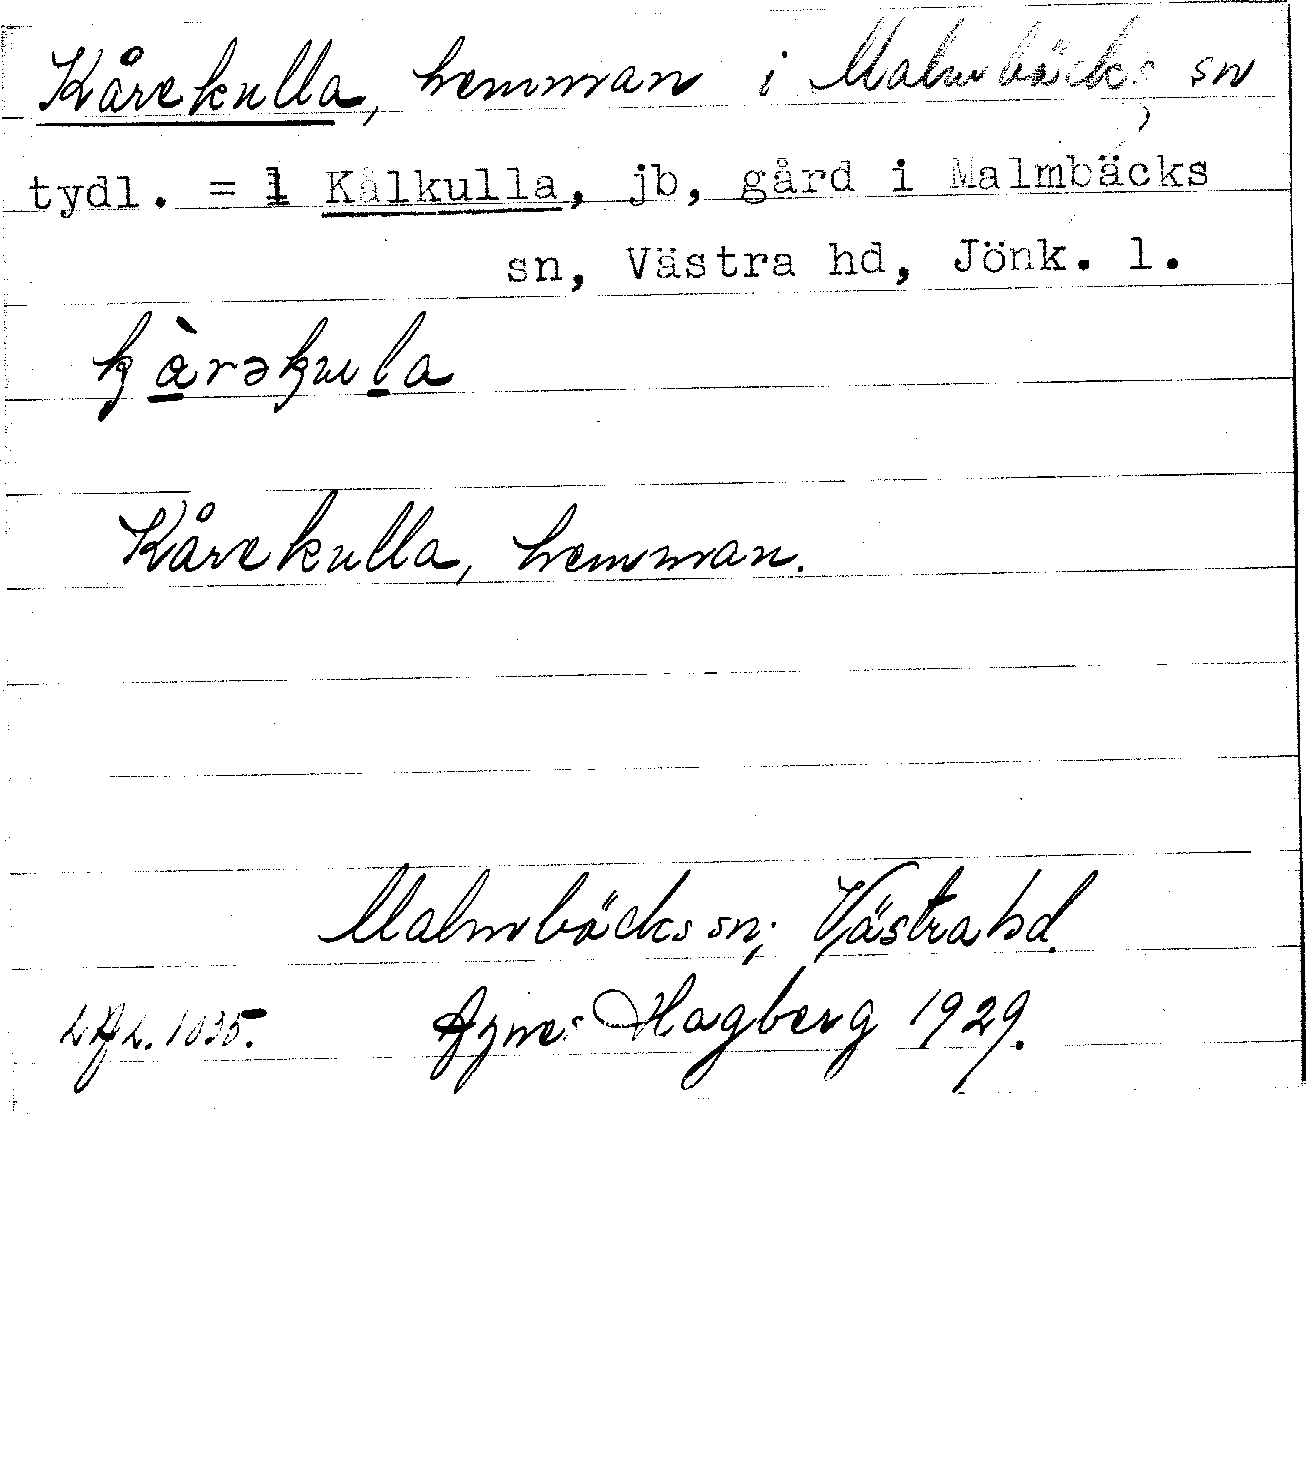 Kårekulla, hemman i Malmbäcks sn
tydl. = 1 Kålkulla, jb, gård i Malmbäcks
sn, Västra hd, Jönk. l.
kàrəkula
Kårekulla, hemman.
Malmbäcks sn; Västra hd.
1035. Agnes Hagberg 1929.